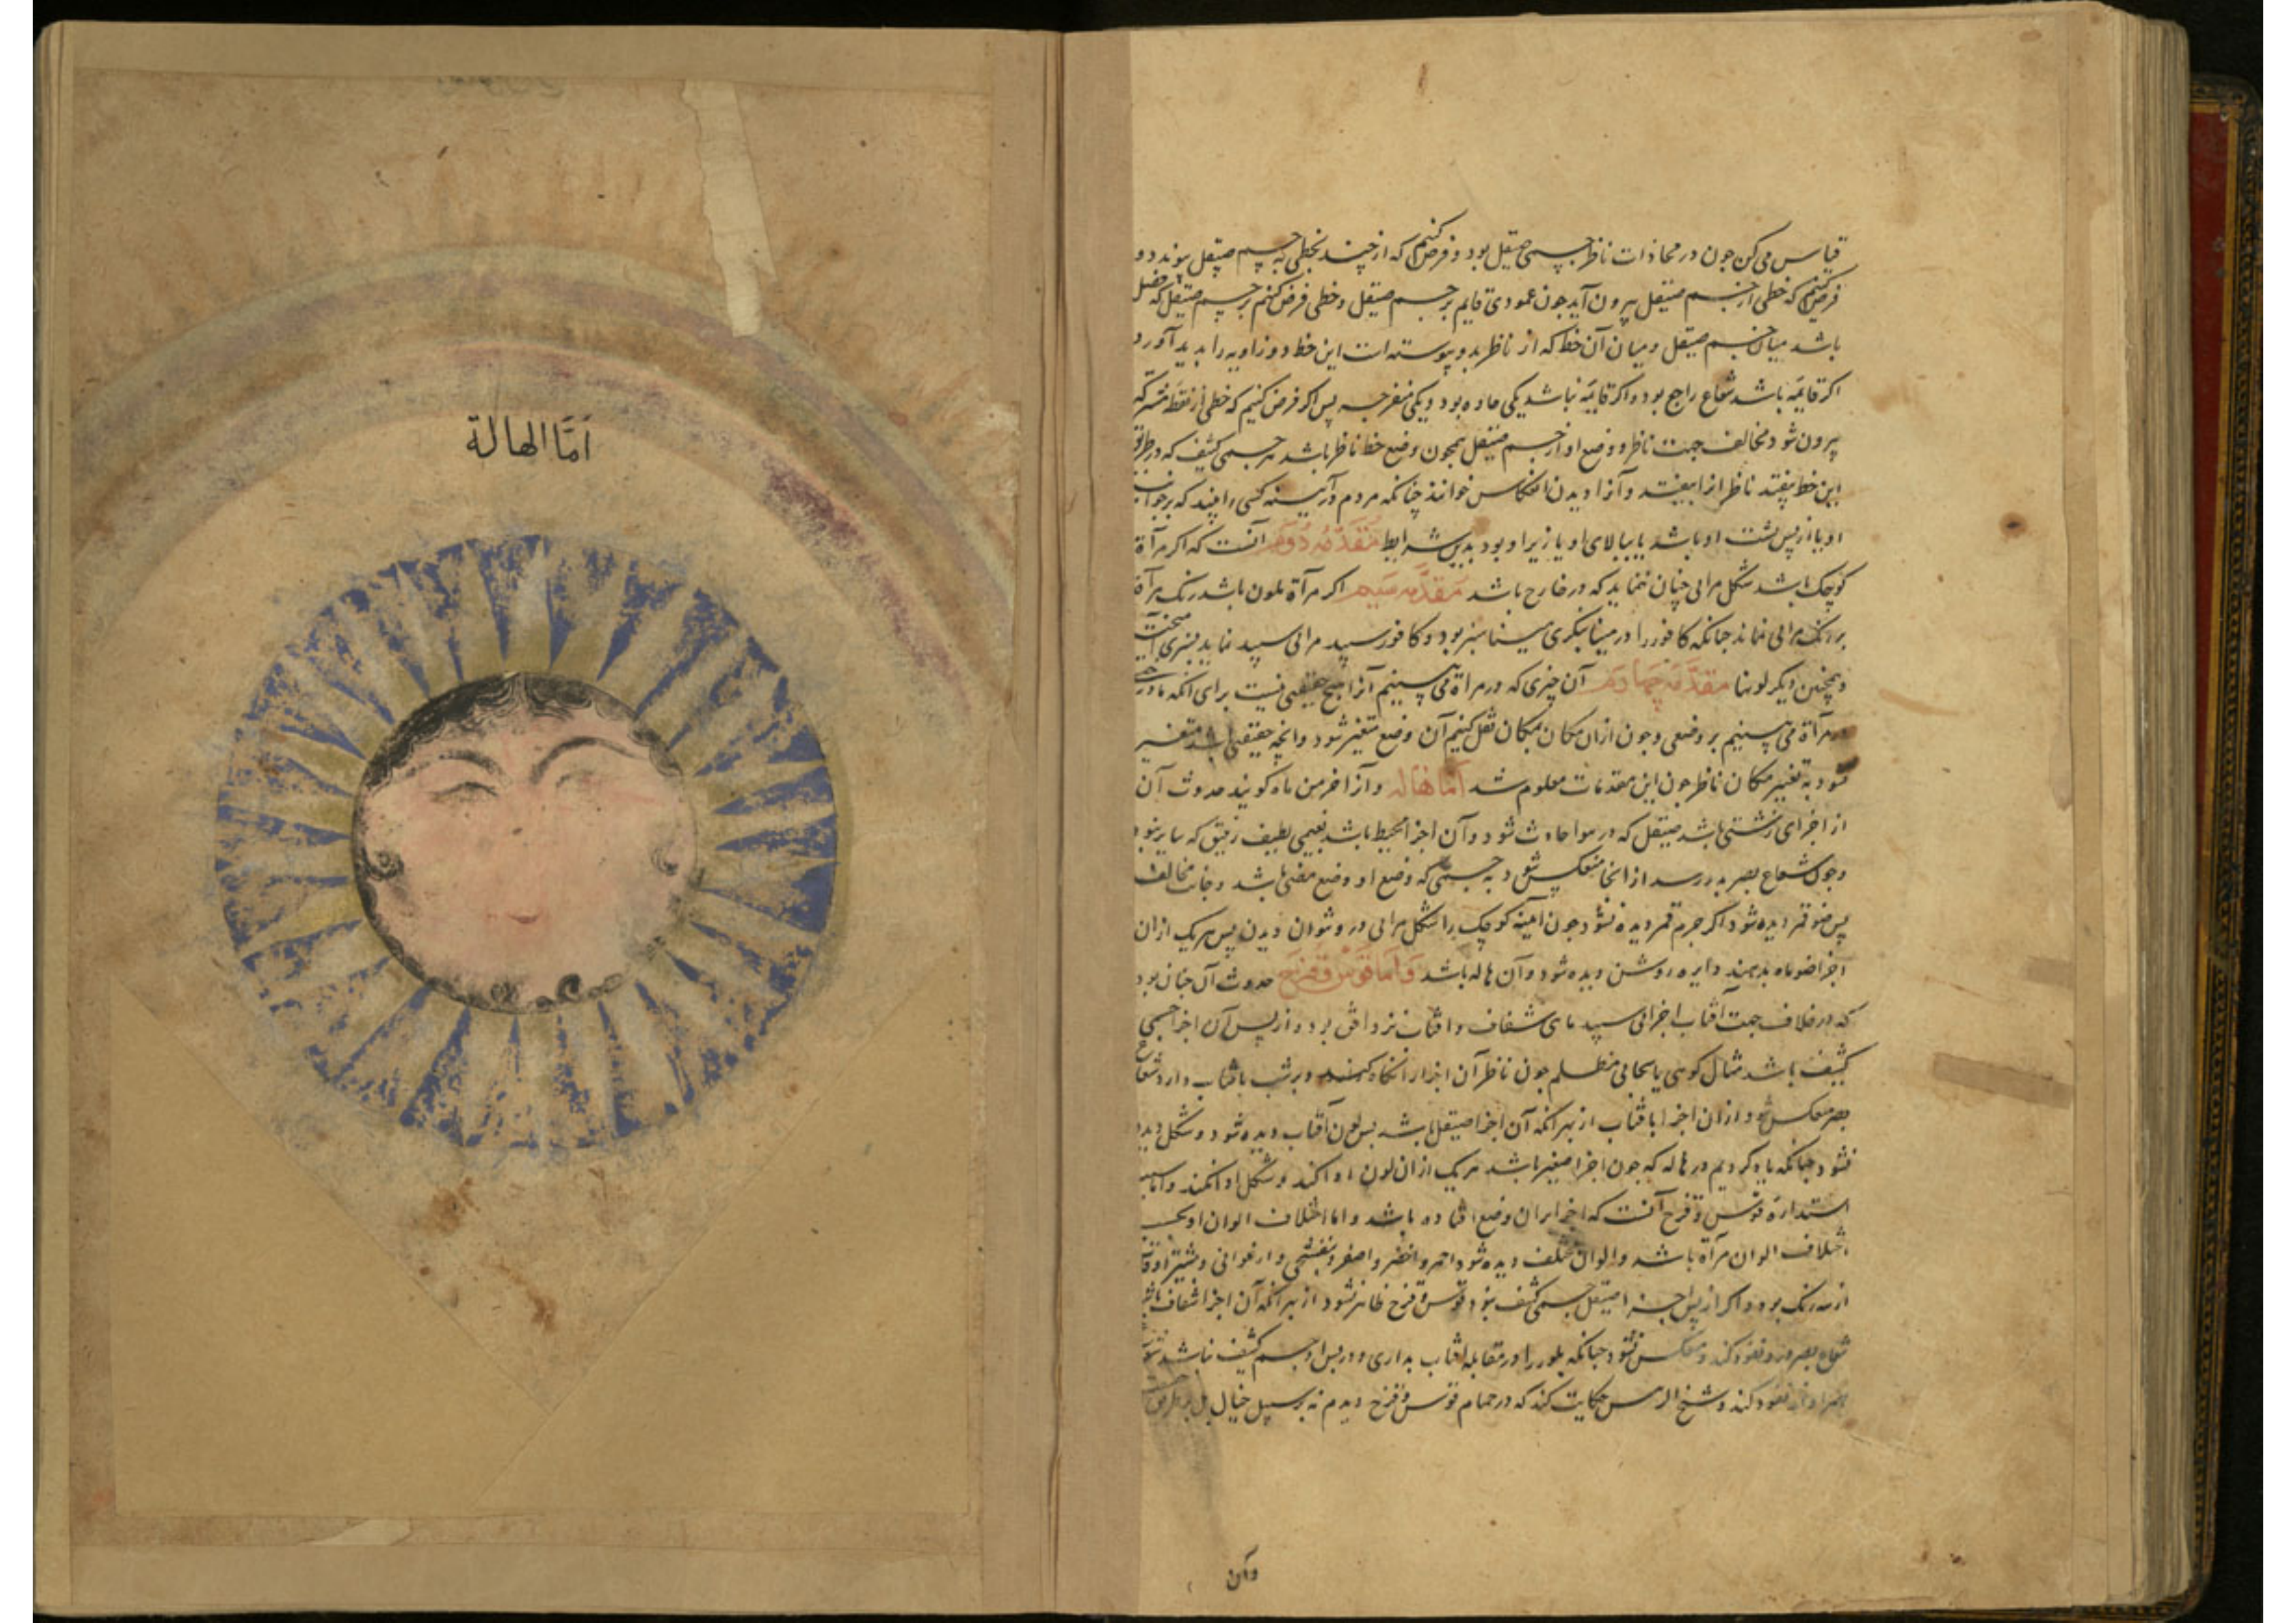 قیاس می کن جون در محاذات ناظر جسمی صیقل بود و فرض کنیم که از چند نخطی به جسم صیقل پیوندد و
فرض کنیم که خطی از جسم صیقل بیرون آید جون عمودی قایم بر جسم صیقل و خطی فرض کنیم بر جسم صیقل که فصل
باشد میان جسم صیقل و میان آن خط که از ناظر بدو پیوسته است این خط دو زاویه را بدید آورد
اکر قایمه باشد شعاع راجع بود و اکر قایمه نباشد یکی حاده بود و یکی منفرجه پس اکر فرض کنیم که خطی از نقطه مشترکه
بیرون شود مخالف جهت ناظر و وضع او از جسم صیقل همجون وضع خط ناظر باشد هر جسمی کثیف که در طریق
این خط بیفتد ناظر انرا ببیند و آنرا دیدن انعکاس خوانند چنانکه مردم در آیینه کسی را بیند که بر جوانب
او یا از پس پشت او باشد یا ببالای او یا زیر او بود بدین شرایط مقدمه دوم آنست که اکر مرآة
کوچک باشد شکل مرائی چنان ننماید که در خارج باشد مقدمه سیم اکر مرآة ملون باشد رنک مرآة
بر رنک مرائی نماید جنانکه کافور را در مینا بنکری مینا سبز بود و کافور سپید مرائی سپید نماید بسبزی آمیخته
و همچنین دیکر لونها مقدمه چهارم آن چیزی که در مرآة می بینیم آنرا هیچ حقیقی نیست برای انکه ما در
مرآة می بینیم بر وضعی و جون ازان مکان بمکان نقل کنیم آن وضع متغیر شود و انچه حقیقی باشد متغیر
نشود به تغییر مکان ناظر جون این مقدمات معلوم شد اما هاله و آنرا خرمن ماه کویند حدوث آن
از اجزای رشتی باشد صیقل که در هوا حادث شود و آن اجزا محیط باشد بغیمی لطیف رقیق که ساتر نبود
و جون شعاع بصر بدو رسد از انجا منعکس شود به جسمی که وضع او وضع مضئ باشد و جانب مخالف
پس ضو قمر دیده شود اکر جرم قمر دیده نشود جون آینه کوچک را شکل مرائی درو نتوان دیدن پس هریک ازان
اجزا ضو ماه بدهند دایره روشن دیده شود و آن هاله باشد و اما قوس قزح حدوث آن جنان بود
که در خلاف جهت آفتاب اجزائی سپید مائی شفاف و آفتاب نزد افق بود و از پس آن اجزا جسمی
کثیف باشد مثال کوهی یا سحابی مظلم جون ناظر آن اجزا را نکاه کند و پشت بافتاب دارد شعاع
بصر منعکس شود ازان اجزا بافتاب از بهر انکه آن اجزا صیقل باشد پس لون آفتاب دیده شود و شکل دیده
نشود جنانکه یاد کردیم در هاله که جون اجزا صغیر باشد هریک ازان لون ادا کند و شکل ادا نکند و اما سبب
استدارة قوس قزح آنست که اجزا بران وضع افتاده باشد و اما اختلاف الوان او بحسب
اختلاف الوان مرآة باشد و الوان مختلف دیده شود احمر و اخضر و اصفر و بنفشجی و ارغوانی و بیشتر اوقات
از سه رنک بود و اکر از پس اجزا صیقل جسمی کثیف نبود قوس قزح ظاهر نشود از بهر انکه آن اجزا شفاف باشد
شعاع بصر درو نفوذ کند و منعکس نشود جنانکه بلور را در مقابله افتاب بداری و در پس او جسم کثیف نباشد
نفوذ کند و شیخ الرئیس حکایت کند که در حمام قوس قزح دیدم نه بر سبیل خیال بل بر طریق
وآن
اما الهالة